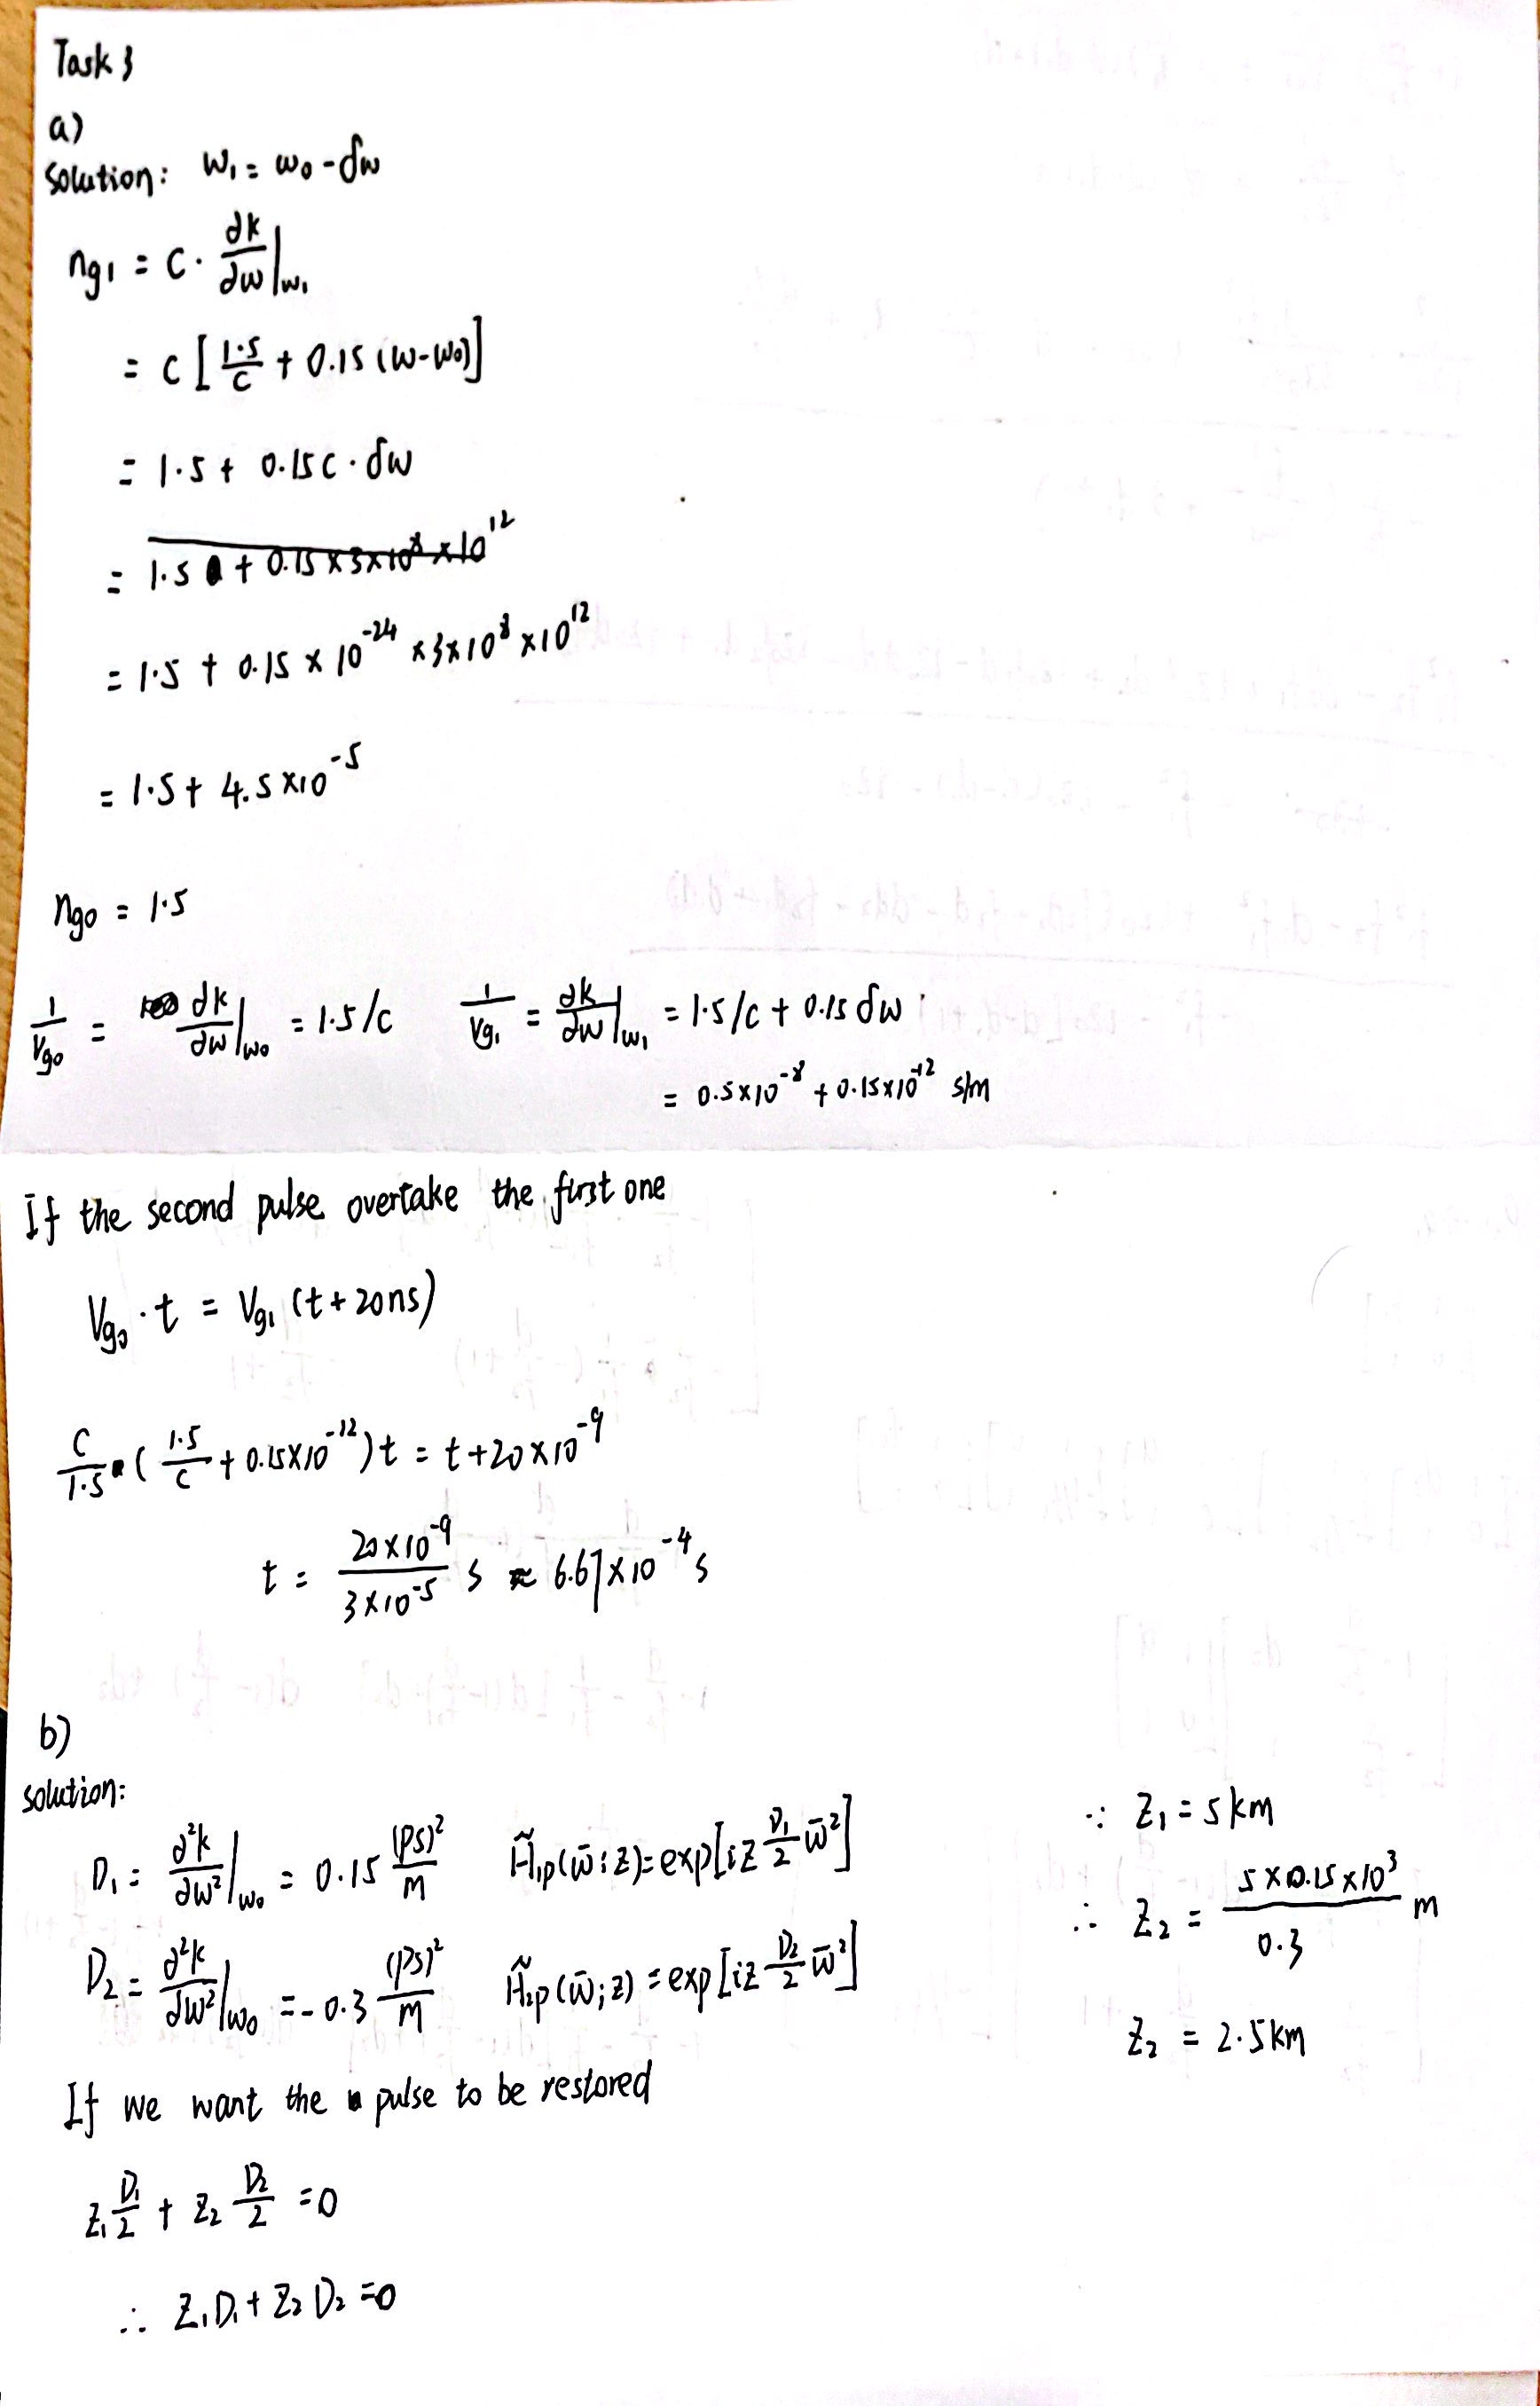 Task 3
a)
Solution: w₁ = w₀ - δw
ng₁ = C · ∂k/∂w |w₁
= C [1.5/C + 0.15 (w-w₀)]
= 1.5 + 0.15C · δw
= 1.5 + 0.15 × 3×10⁸ × 10¹²
= 1.5 + 0.15 × 10⁻²⁴ × 3×10⁸ × 10¹²
= 1.5 + 4.5 × 10⁻⁵
ng₀ = 1.5
1/Vg₀ = ∂k/∂w |w₀ = 1.5/C    1/Vg₁ = ∂k/∂w |w₁ = 1.5/C + 0.15 δw
= 0.5×10⁻⁸ + 0.15×10⁻¹² s/m
If the second pulse overtake the first one
Vg₀ · t = Vg₁ (t + 20ns)
C/1.5 · (1.5/C + 0.15×10⁻¹²) t = t + 20×10⁻⁹
t = 20×10⁻⁹ / 3×10⁻⁵ s ≈ 6.67×10⁻⁴ s
b)
solution:
D₁ = ∂²k/∂w² |w₀ = 0.15 (ps)²/m    H̃₁p(w̄; z) = exp[iz D₁/2 w̄²]
D₂ = ∂²k/∂w² |w₀ = -0.3 (ps)²/m    H̃₂p(w̄; z) = exp[iz D₂/2 w̄²]
If we want the pulse to be restored
z₁ D₁/2 + z₂ D₂/2 = 0
∴ z₁D₁ + z₂D₂ = 0
∵ z₁ = 5 km
∴ z₂ = 5 × 0.15 × 10³ / 0.3 m
z₂ = 2.5 km